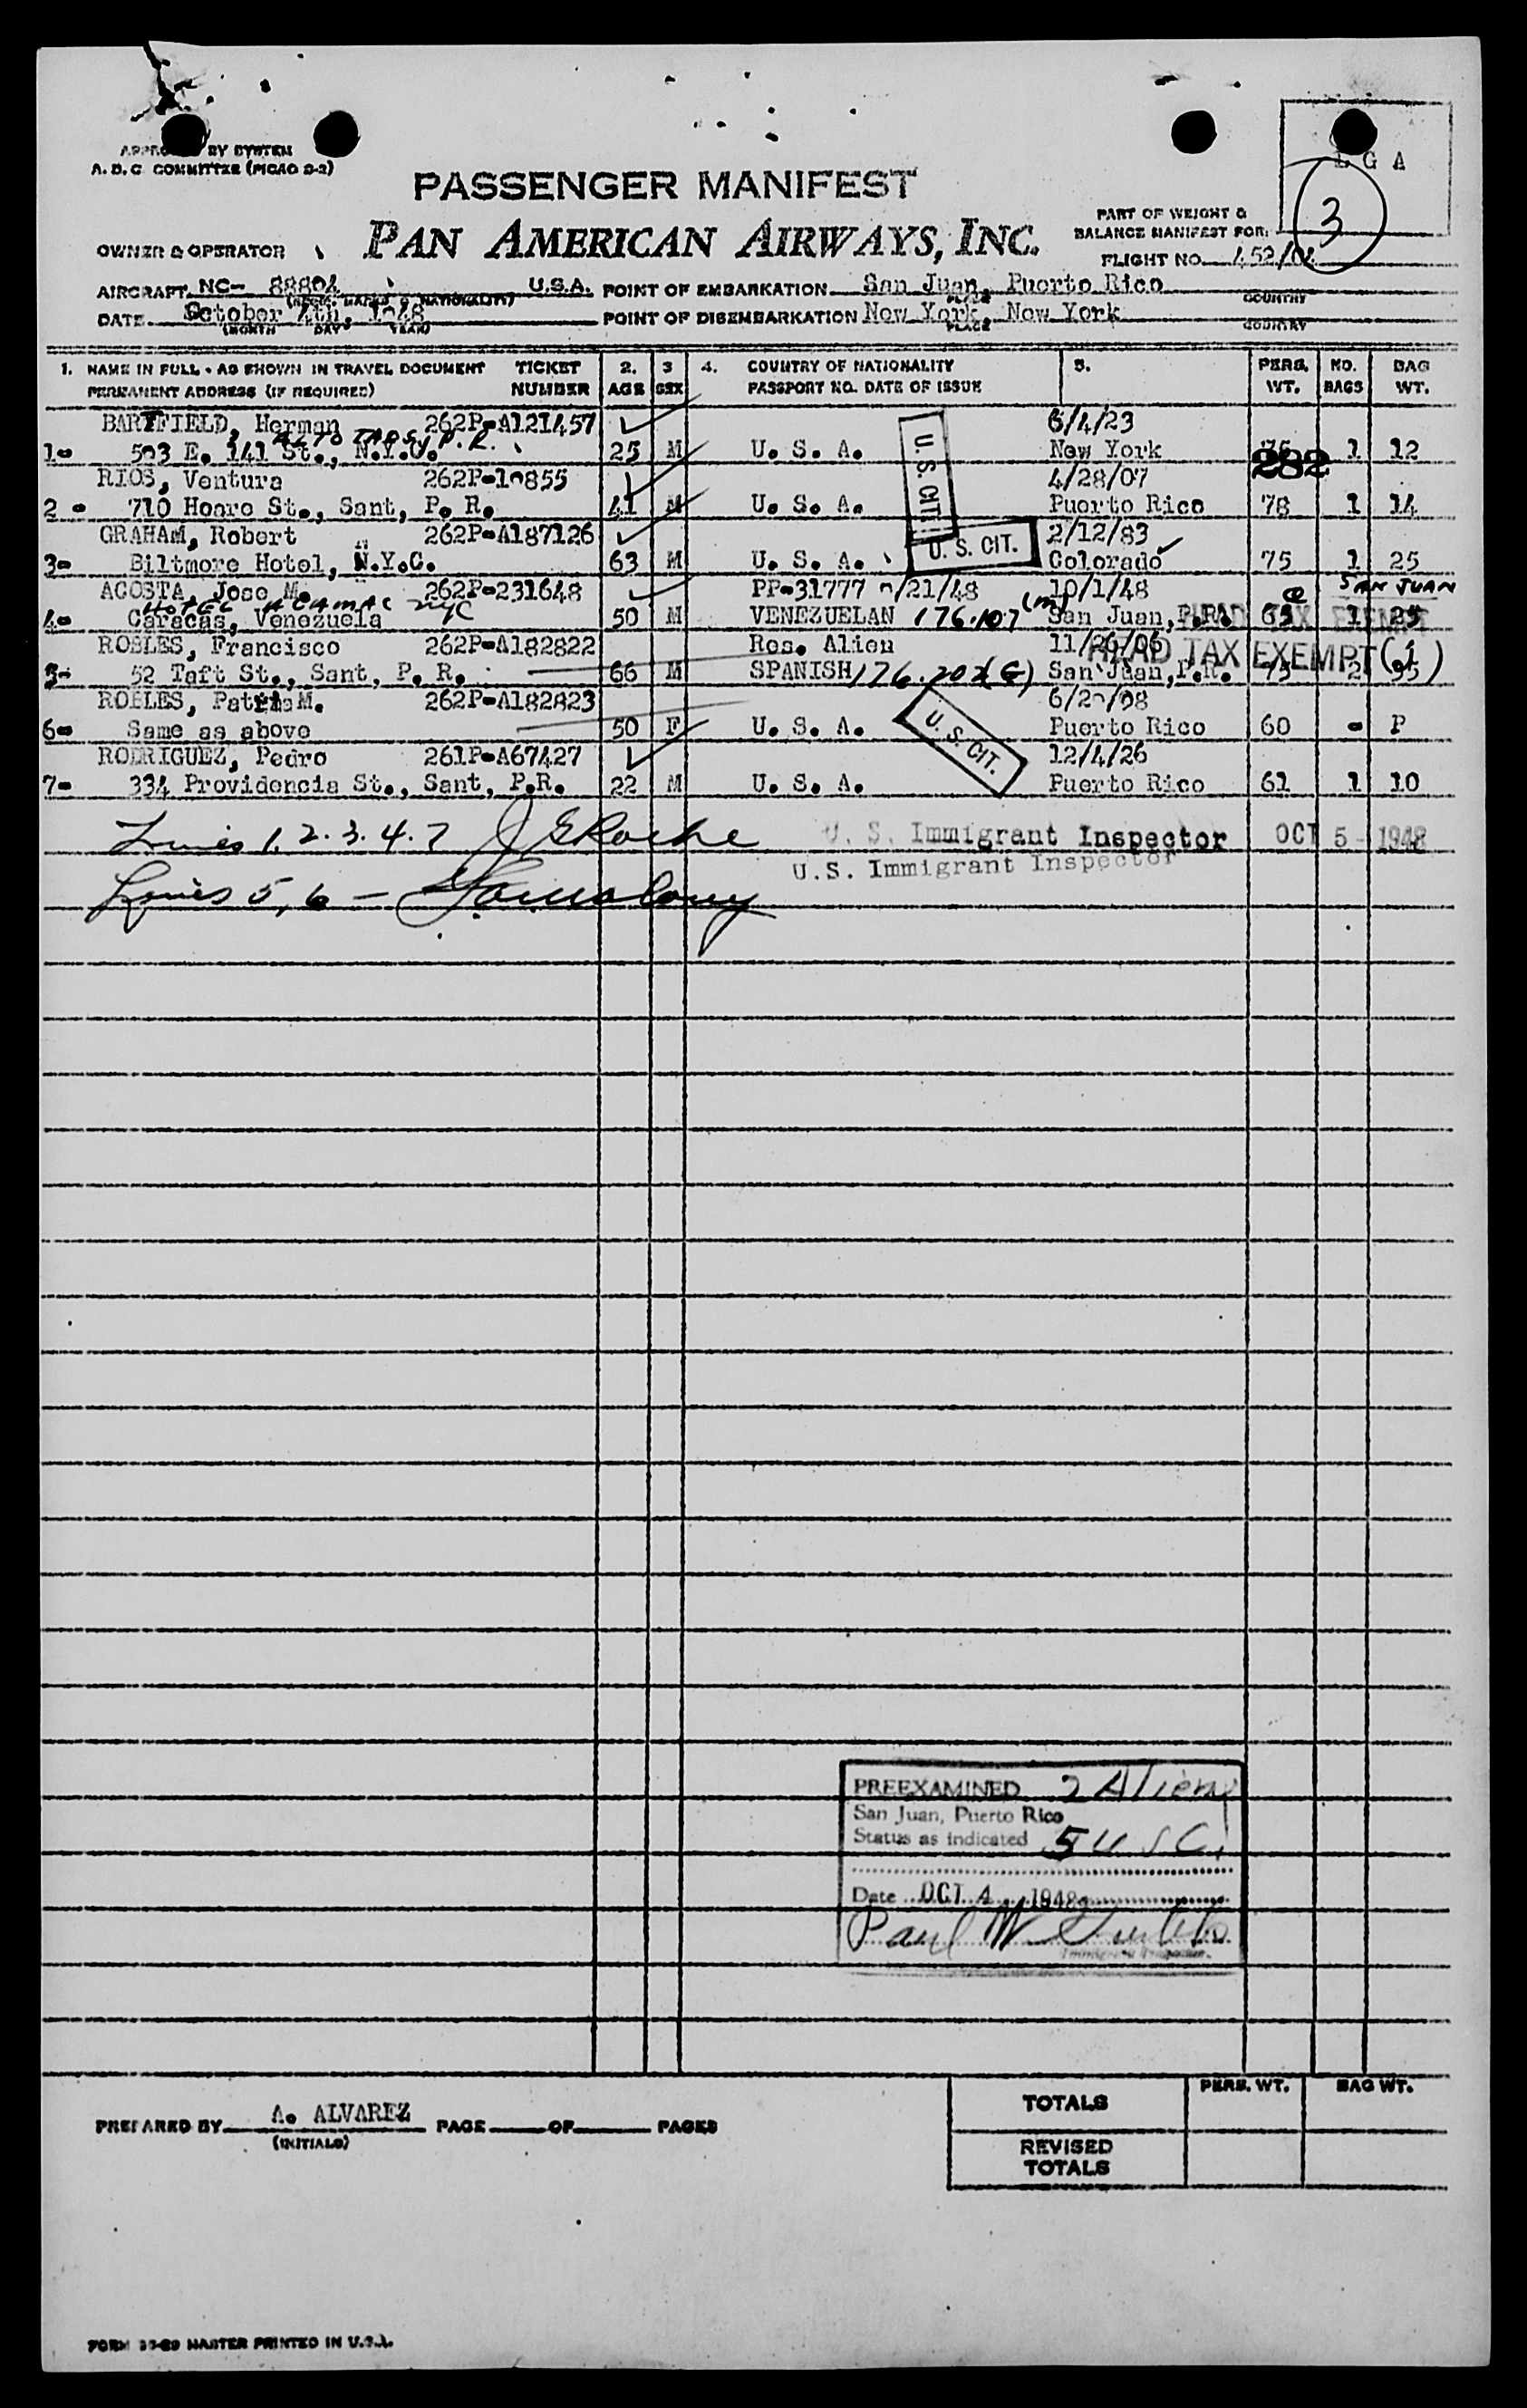 BY SYSTEM
A.D.C COMMITTEE (PICAO D-2)
L G A
3
PASSENGER MANIFEST
PAN AMERICAN AIRWAYS, INC.
PART OF WEIGHT &
BALANCE MANIFEST FOR:
OWNER & OPERATOR
FLIGHT NO. 452/04
AIRCRAFT NC- 88804 U.S.A. POINT OF EMBARKATION San Juan, Puerto Rico
(REGIS. MARKS & NATIONALITY) PLACE COUNTRY
DATE October 4th, 1948 POINT OF DISEMBARKATION New York, New York
(MONTH DAY YEAR) PLACE COUNTRY
1. NAME IN FULL - AS SHOWN IN TRAVEL DOCUMENT TICKET 2. 3 4. COUNTRY OF NATIONALITY 5. PERS. NO. BAG
PERMANENT ADDRESS (IF REQUIRED) NUMBER AGE SEX PASSPORT NO. DATE OF ISSUE WT. BAGS WT.
BARTFIELD, Herman 262P-A121457 6/4/23
1- 503 E. 141 St., N.Y.C. P.R. 25 M U. S. A. New York 75 1 12
282
RIOS, Ventura 262P-10855 4/28/07
2 - 710 Hoare St., Sant, P. R. 41 M U. S. A. Puerto Rico 78 1 14
U. S. CIT.
GRAHAM, Robert 262P-A187126 2/12/83
3- Biltmore Hotel, N.Y.C. 63 M U. S. A. U. S. CIT. Colorado 75 1 25
ACOSTA, Jose M. 262P-231648 PP-31777 9/21/48 10/1/48 SAN JUAN
HOTEL ALAMAC NYC
4- Caracas, Venezuela 50 M VENEZUELAN 176.107 (m) San Juan, P.R. 63 1 25
HEAD TAX EXEMPT
ROBLES, Francisco 262P-A182822 Res. Alien 11/26/06
HEAD TAX EXEMPT (1)
5- 52 Taft St., Sant, P. R. 66 M SPANISH 176.202 (G) San Juan, P.R. 75 2 95
ROBLES, Patria M. 262P-A182823 6/20/98
6- Same as above 50 F U. S. A. Puerto Rico 60 - P
U. S. CIT.
RODRIGUEZ, Pedro 261P-A67427 12/4/26
7- 334 Providencia St., Sant, P.R. 22 M U. S. A. Puerto Rico 61 1 10
Lines 1. 2. 3. 4. 7 J G Roche U. S. Immigrant Inspector OCT 5 - 1948
U.S. Immigrant Inspector
Lines 5, 6 -
PREEXAMINED 2 Aliens
San Juan, Puerto Rico
Status as indicated 5 U S C.
Date OCT 4 1948
Paul W
Immigrant Inspector
TOTALS PERS. WT. BAG WT.
PREPARED BY A. ALVAREZ PAGE OF PAGES
(INITIALS)
REVISED
TOTALS
MASTER PRINTED IN U.S.A.